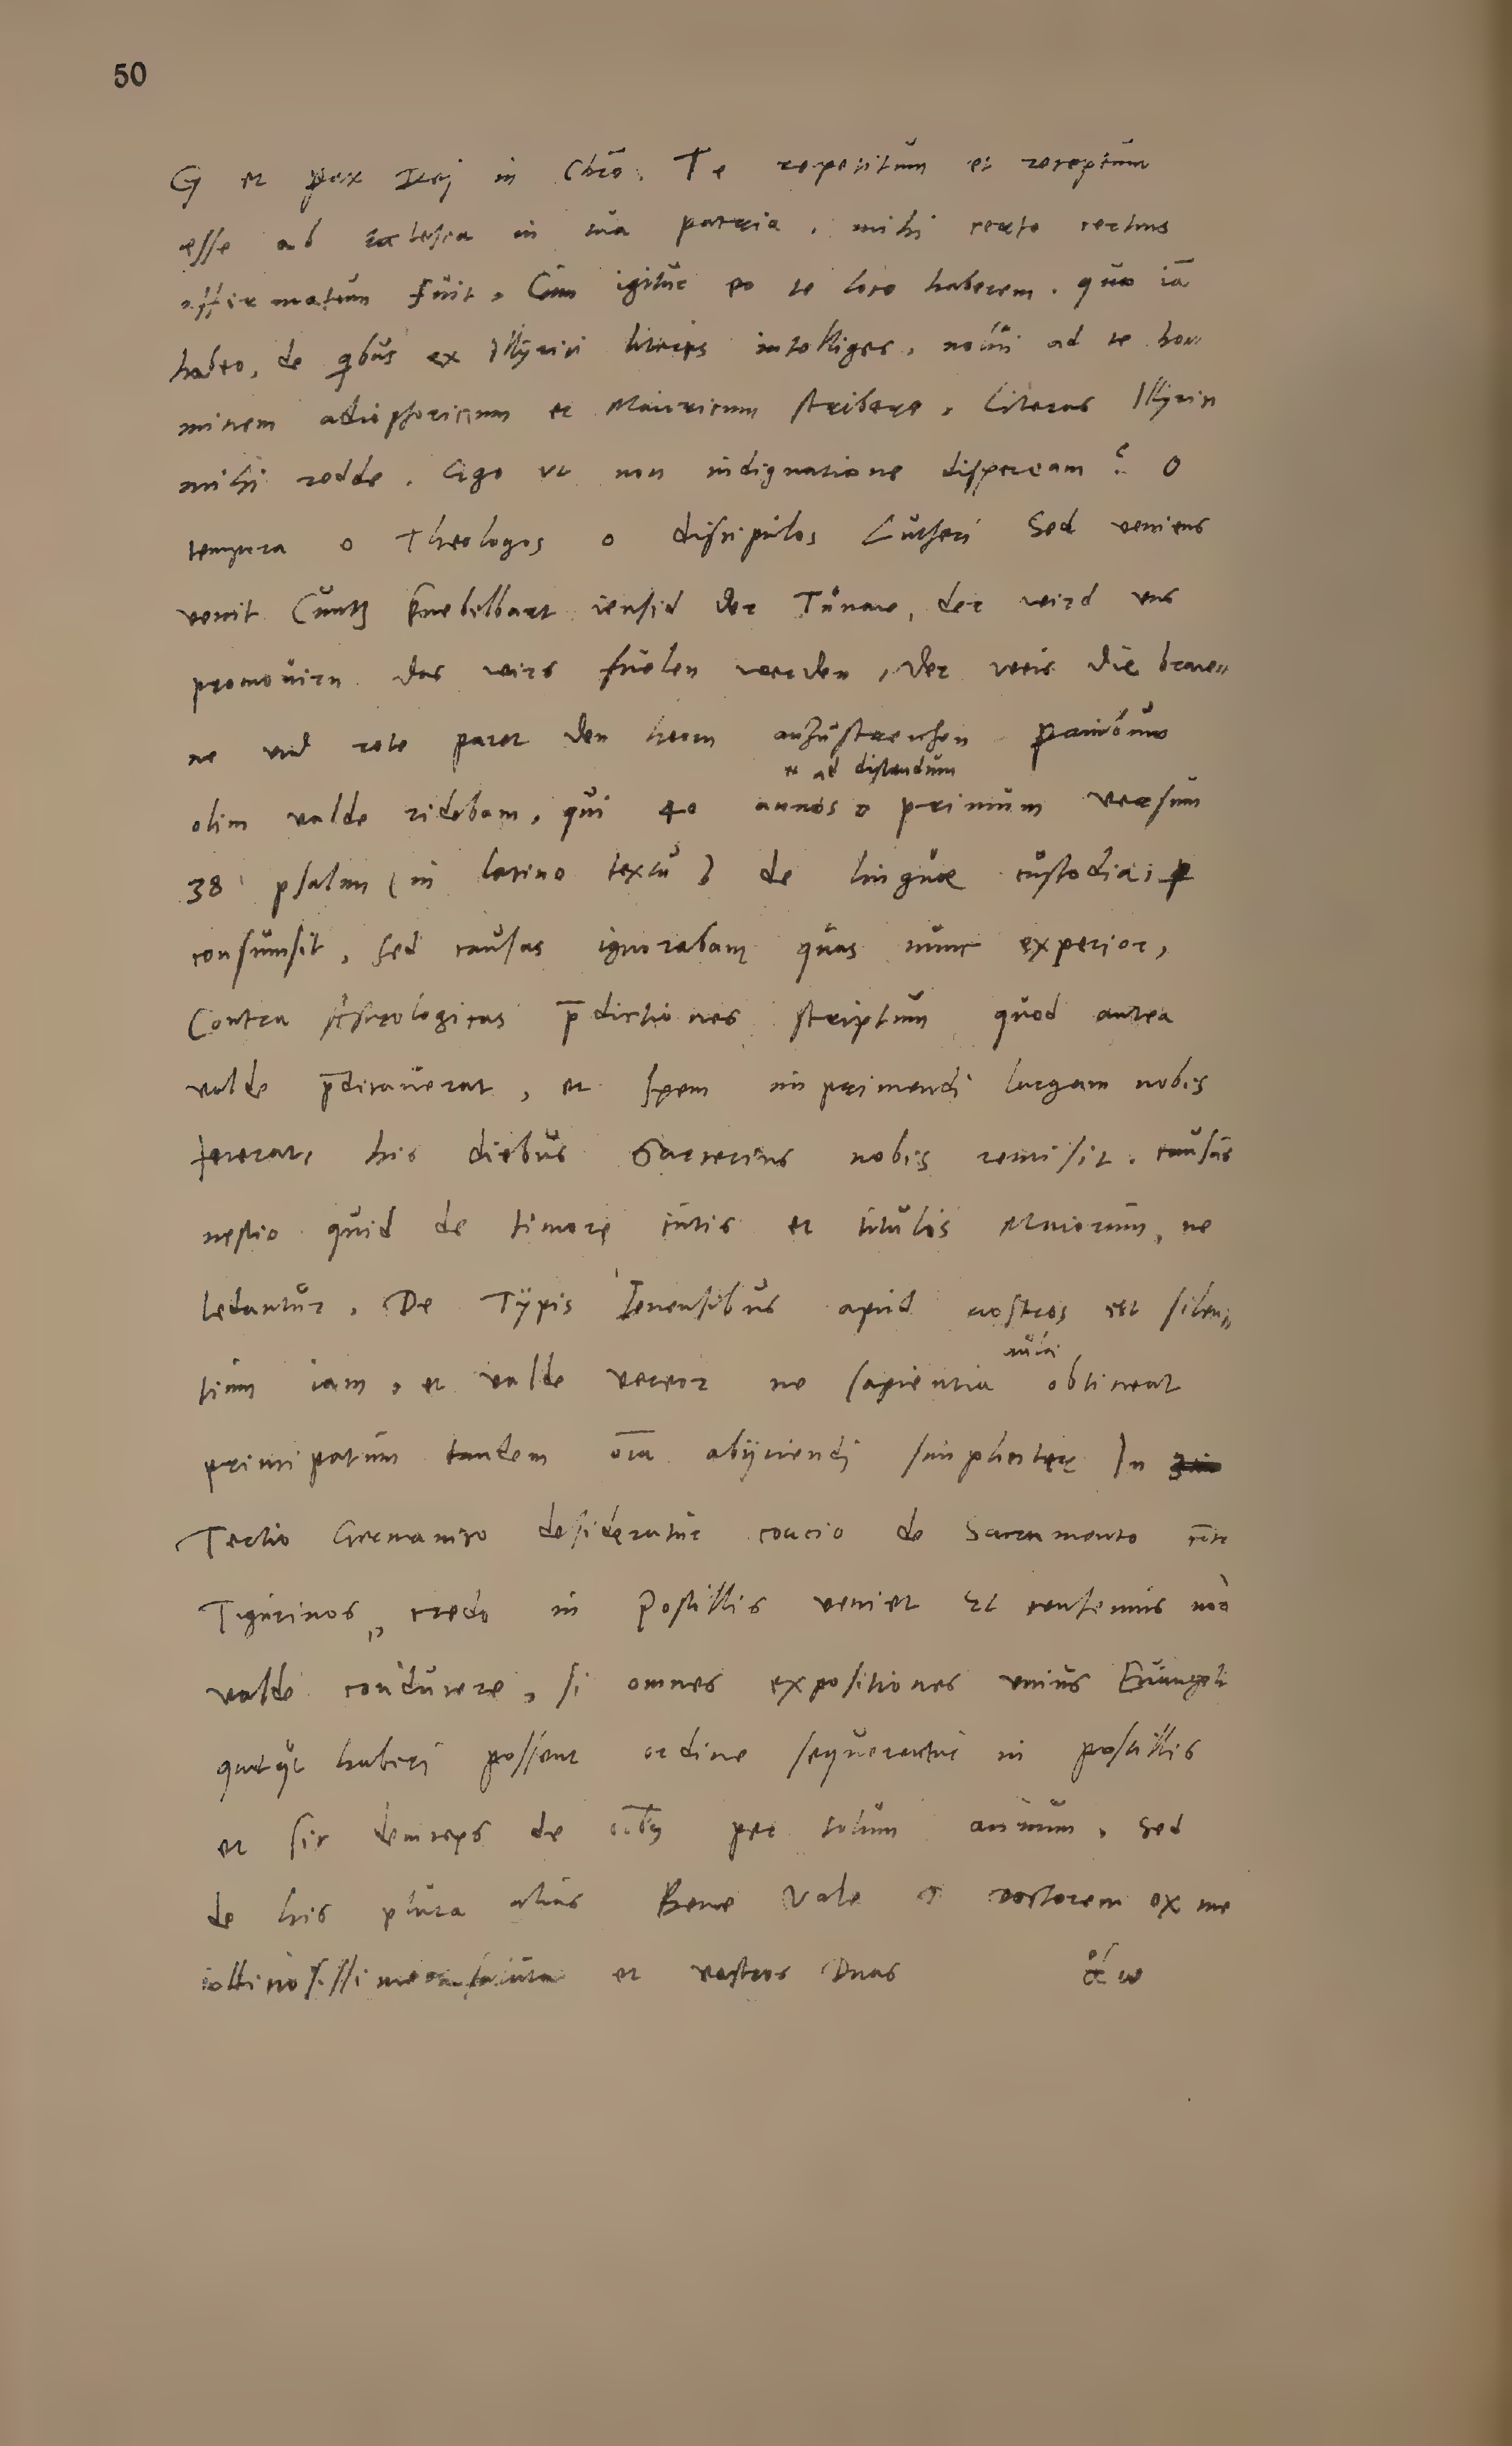 50
G et pax Dej in Chro. Te repetitum et receptum
esse ab ecclesia in tua patria, mihi certo certius
affirmatum fuit. Cum igitur eo te loco haberem, quo iā
habeo, de qbus ex Illyrici literis intelliges, nolui ad te ho„
minem adiaphoricum et Mauricium scribere. Literas Illyrici
mihi redde. Ego vt non indignatione dispeream? O
tempora o Theologos o discipulos Lutheri Sed veniens
veniet Cuntz Knebelbart iensid der Tunaw, der wird vns
promouirn das wirs fuelen werden, der weis die braw„
ne vnd rote paret den herrn anzustreichen Pambum
et ad discendum
olim valde ridebam, qui 40 annos primum versum
38 psalmi (in latino textu) de linguae custodia
consumsit, sed causas ignorabam quas nunc experior,
Contra Astrologicas p̄dictiones scriptum quod antea
valde p̄dicauerat, et spem imprimendi largam nobis
fecerat, his diebus Sarcerius nobis remisit. causās
nescio quid de timore et titulis Maiorum, ne
ledantur. De Typis Ienensibus apud nostros est silen„
mihi
tium iam, et valde vereor ne sapientia obtineat
principatum tandem oīa abijciendi simpliciter In
Tertio Germanico desideratur concio de Sacramento
Tigurinos, credo in Postillis veniet Et censemus non
valde conducere, si omnes expositiones vnius Euangeli
quotquot haberi possent ordine sequerentur in postillis
et sic deinceps de oībus per totum annum. Sed
de his plura alias Bene Vale et vostorem ex me
et vestros Dnos